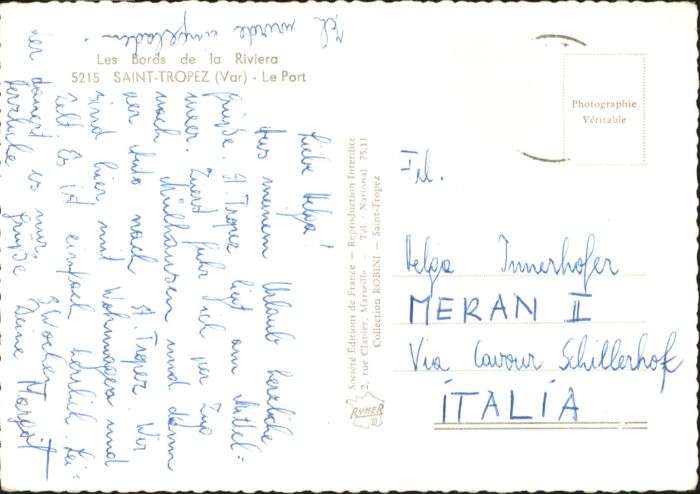 Les Bords de la Riviera
5215 SAINT-TROPEZ (Var) - Le Port
Ich wurde eingeladen.
Liebe Helga!
Aus meinem Urlaub herzliche
Grüße. St. Tropez liegt am Mittel=
meer. Zuerst fuhr ich per Zug
nach Mülhausen und dann
per Auto nach St. Tropez. Wir
sind hier mit Wohnwagen und
Zelt. Es ist einfach herrlich. Lei=
der dauert es nur 3 Wochen
herzliche Grüße
Deine Margot
Société Editions de France - Reproduction Interdite
2, rue Clapier, Marseille - Tél. National 75.11
Collection ROBINI - Saint-Tropez
RYNER
Photographie
Véritable
Frl.
Helga Innerhofer
MERAN II
Via Cavour Schillerhof
ITALIA